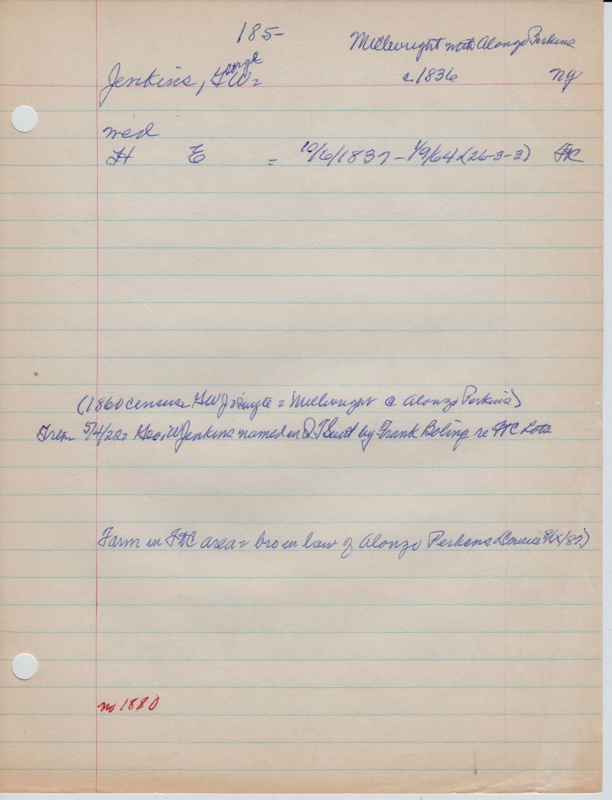 185-
Millwright with Alonzo Perkins
Jenkins, GW = single c.1836 NY
wed
H E = 10/6/1837 - 1/9/64 (26-3-3) FtC
(1860 census GWJ single = Millwright c Alonzo Perkins)
5/4/22 = Geo. W Jenkins named in QT Suit by Frank Boling re FtC Lots
Farm in FtC area = bro in law of Alonzo Perkins (Courier
no 1880